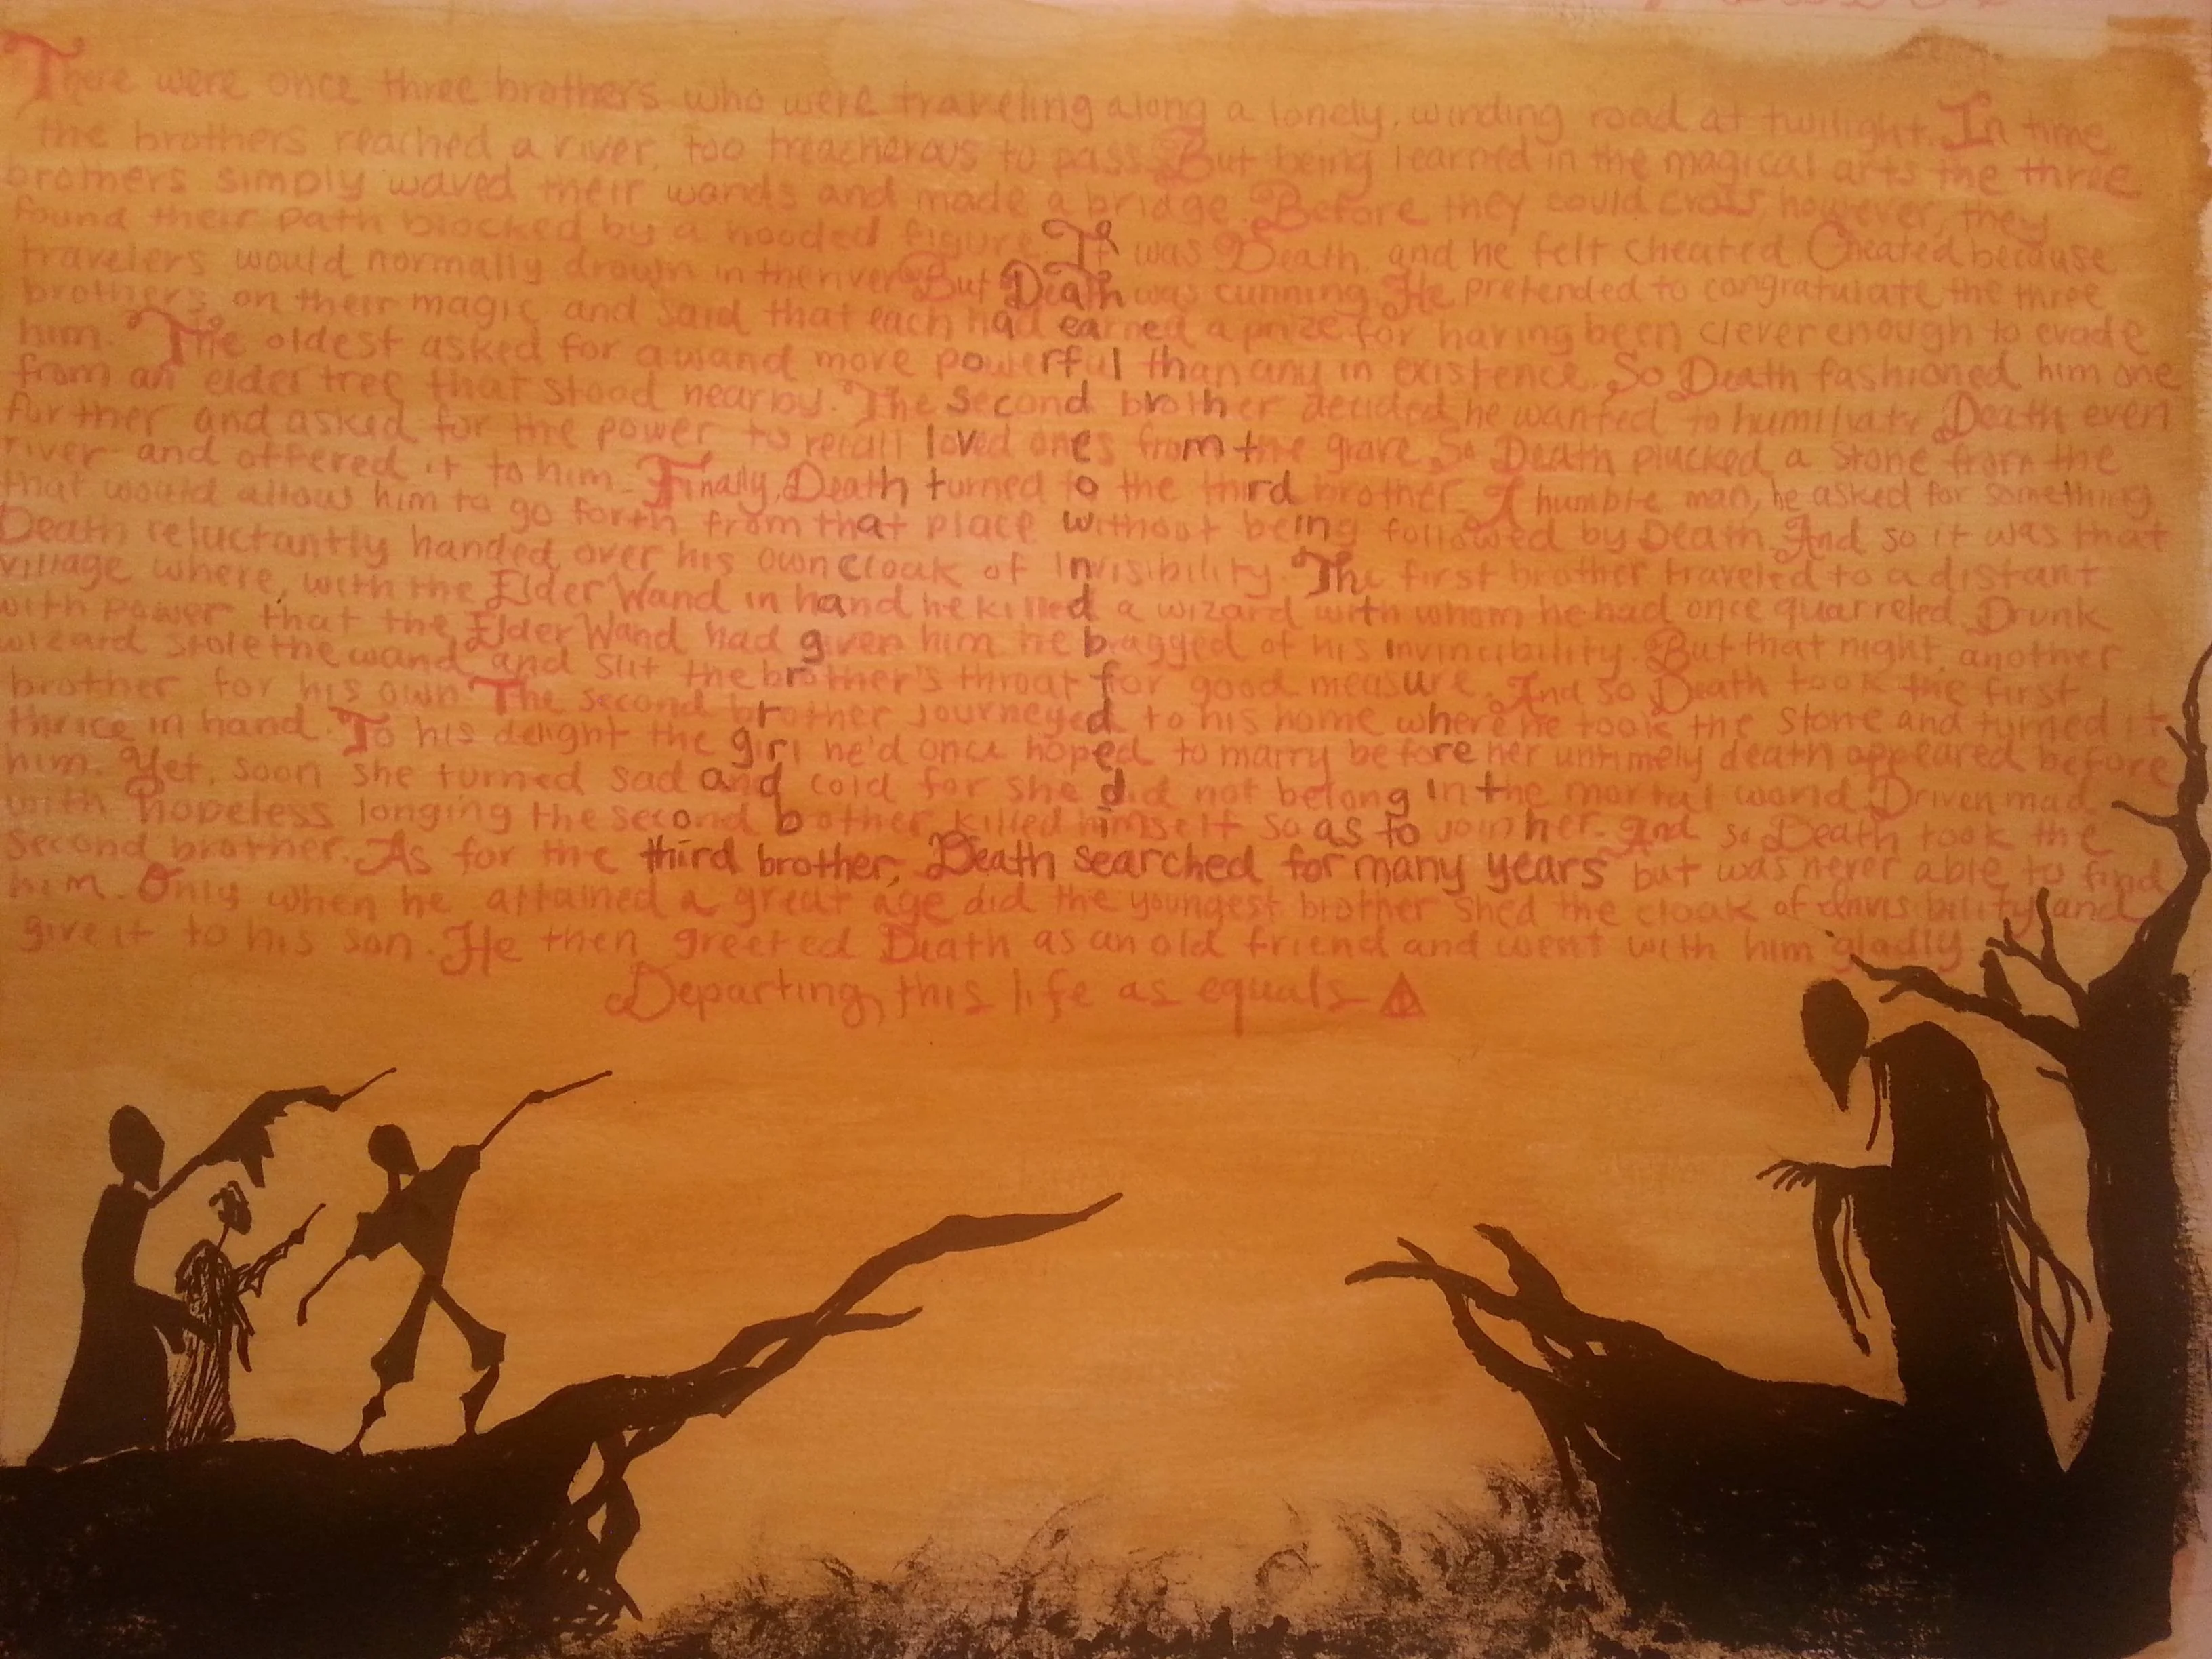 There were once three brothers who were traveling along a lonely, winding road at twilight. In time
the brothers reached a river, too treacherous to pass. But being learned in the magical arts the three
brothers simply waved their wands and made a bridge. Before they could cross, however, they
found their path blocked by a hooded figure. It was Death, and he felt cheated. Cheated because
travelers would normally drown in the river. But Death was cunning. He pretended to congratulate the three
brothers on their magic and said that each had earned a prize for having been clever enough to evade
him. The oldest asked for a wand more powerful than any in existence. So Death fashioned him one
from an elder tree that stood nearby. The second brother decided he wanted to humiliate Death even
further and asked for the power to recall loved ones from the grave. So Death plucked a stone from the
river and offered it to him. Finally, Death turned to the third brother. A humble man, he asked for something
that would allow him to go forth from that place without being followed by Death. And so it was that
Death reluctantly handed over his own cloak of Invisibility. The first brother traveled to a distant
village where, with the Elder Wand in hand he killed a wizard with whom he had once quarreled. Drunk
with power that the Elder Wand had given him he bragged of his invincibility. But that night, another
wizard stole the wand and slit the brother's throat for good measure. And so Death took the first
brother for his own. The second brother journeyed to his home where he took the stone and turned it
thrice in hand. To his delight the girl he'd once hoped to marry before her untimely death appeared before
him. Yet, soon she turned sad and cold for she did not belong in the mortal world. Driven mad
with hopeless longing the second bother killed himself so as to join her. And so Death took the
second brother. As for the third brother, Death searched for many years but was never able to find
him. Only when he attained a great age did the youngest brother shed the cloak of Invisibility and
give it to his son. He then greeted Death as an old friend and went with him gladly
Departing this life as equals